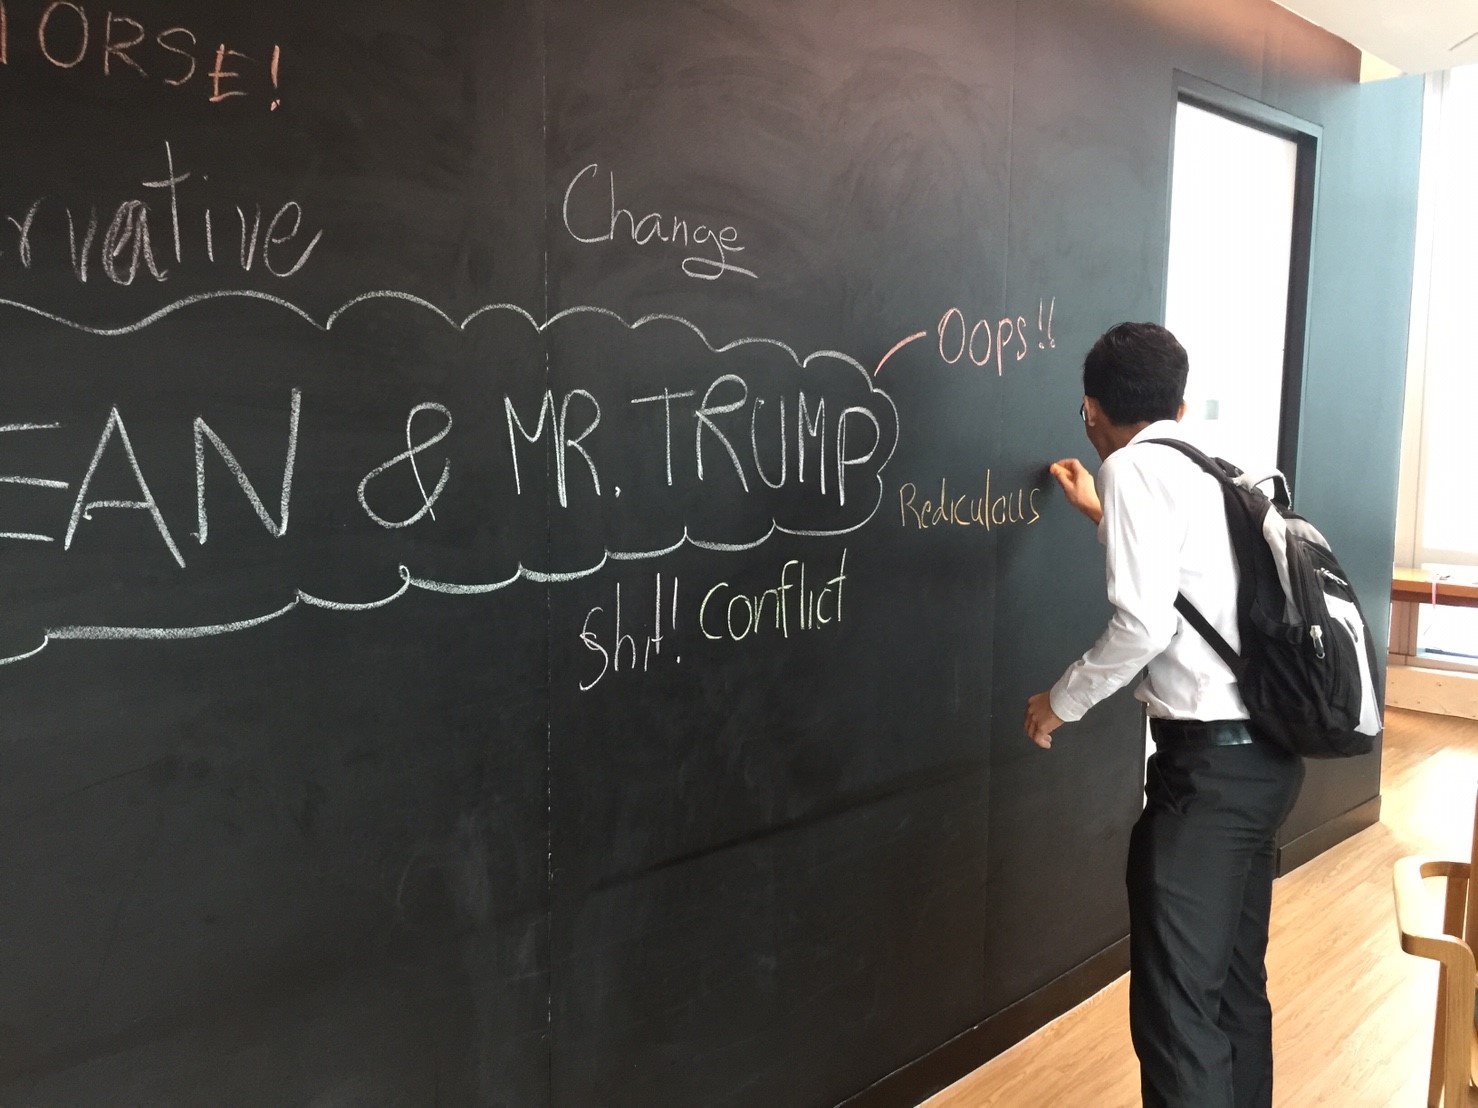 ORSE!
rvative
Change
Oops!!
EAN & MR. TRUMP
Rediculous
Shit! Conflict